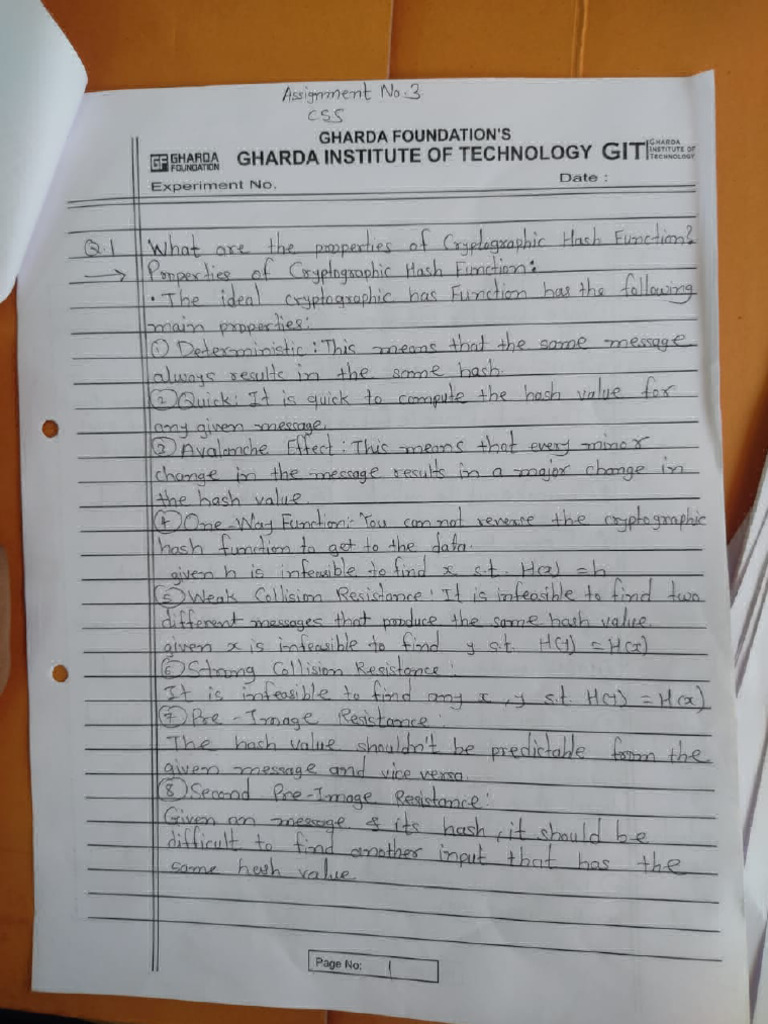 Assignment No:3
CSS
GHARDA FOUNDATION'S
GF GHARDA FOUNDATION GHARDA INSTITUTE OF TECHNOLOGY GIT GHARDA INSTITUTE OF TECHNOLOGY
Experiment No. Date :
Q.1 What are the properties of Cryptographic Hash Function?
→ Properties of Cryptographic Hash Function:
• The ideal cryptographic has Function has the following
main properties:
① Deterministic: This means that the same message
always results in the same hash.
② Quick: It is quick to compute the hash value for
any given message.
③ Avalanche Effect: This means that every minor
change in the message results in a major change in
the hash value.
④ One-Way Function: You cannot reverse the cryptographic
hash function to get to the data.
given h is infeasible to find x s.t. H(x) = h
⑤ Weak Collision Resistance: It is infeasible to find two
different messages that produce the same hash value.
given x is infeasible to find y s.t. H(y) = H(x)
⑥ Strong Collision Resistance:
It is infeasible to find any x, y s.t. H(y) = H(x)
⑦ Pre-Image Resistance:
The hash value shouldn't be predictable form the
given message and vice versa.
⑧ Second Pre-Image Resistance:
Given an message & its hash, it should be
difficult to find another input that has the
same hash value
Page No: 1